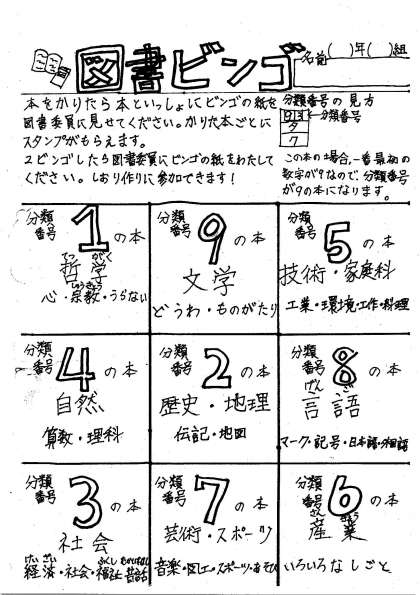 図書ビンゴ
名前
( )年( )組
本をかりたら本といっしょにビンゴの紙を
図書委員に見せてください。かりた本ごとに
スタンプがもらえます。
2ビンゴしたら図書委員にビンゴの紙をわたして
ください。しおり作りに参加できます!
分類番号の見方
913←分類番号
タ
ク
この本の場合、一番最初の
数字が9なので、分類番号
が9の本になります。
分類番号 1 の本
てつ がく
哲学
しゅうきょう
心・宗教・うらない
分類番号 9 の本
文学
どうわ・ものがたり
分類番号 5 の本
技術・家庭科
工業・環境・工作・料理
分類番号 4 の本
自然
算数・理科
分類番号 2 の本
歴史・地理
伝記・地図
分類番号 8 の本
げん ご
言語
マーク・記号・日本語・外国語
分類番号 3 の本
社会
けいざい ふくし むかしばなし
経済・社会・福祉・昔話
分類番号 7 の本
芸術・スポーツ
音楽・図工・スポーツ・あそび
分類番号 6 の本
さん ぎょう
産業
いろいろなしごと